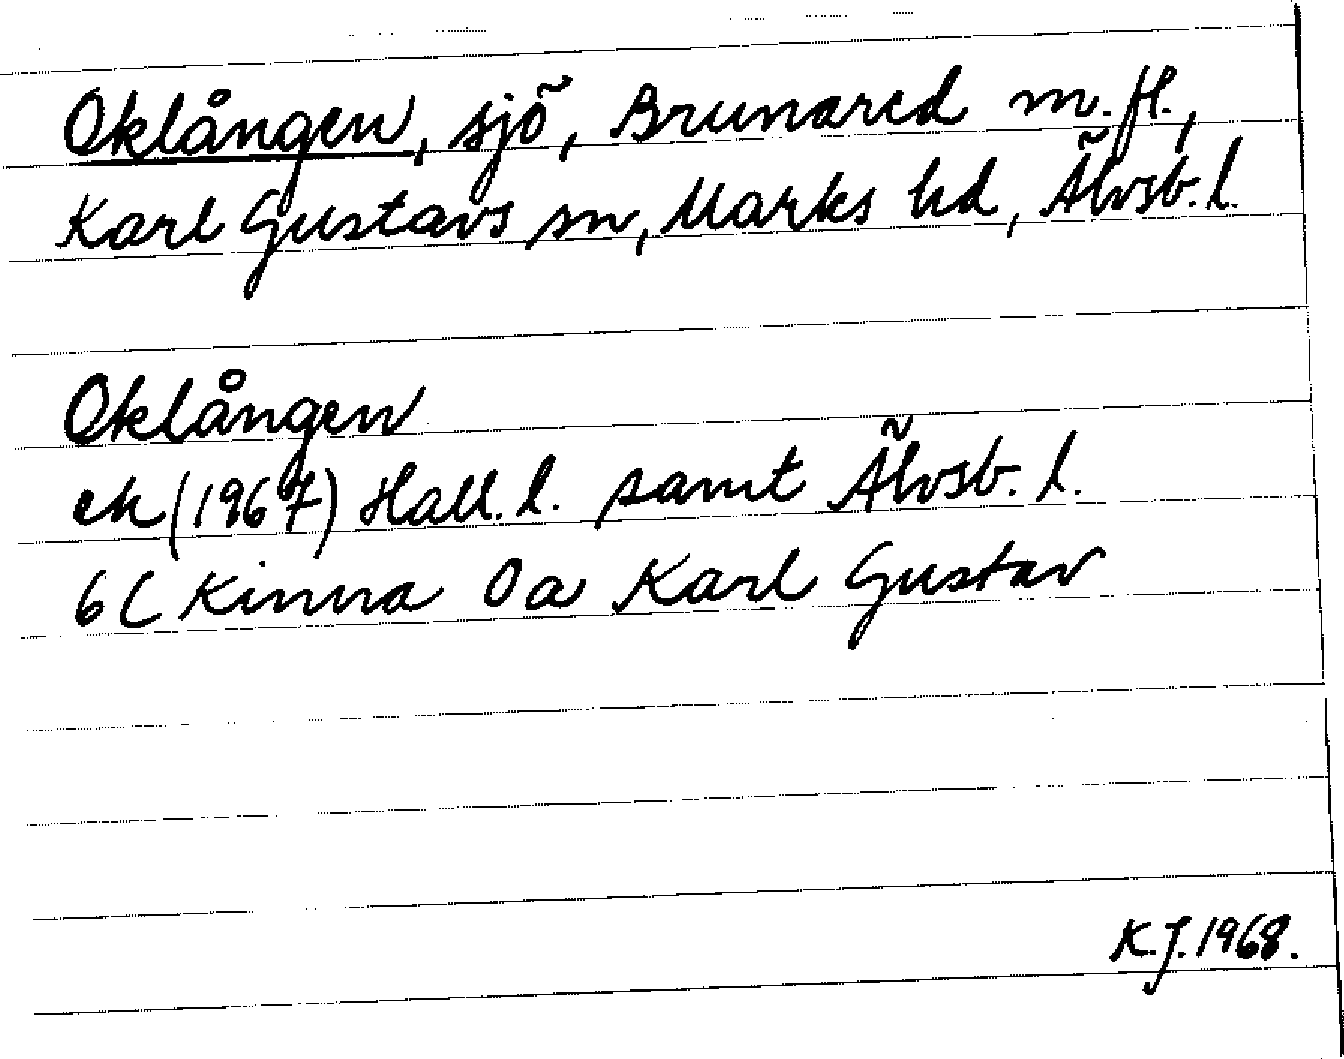 Oklången, sjö, Brunared m.fl.,
Karl Gustavs sn, Marks hd, Älvsb. l.
Oklången
ek (1967) Hall. l. samt Älvsb. l.
6C Kinna 0a Karl Gustav
K.J. 1968.